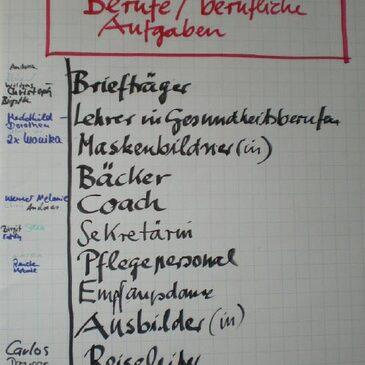 Berufe / berufliche
Aufgaben
Andrea
Christoph
Briefträger
Birgitta
Mechthild
Dorothea
Lehrer in Gesundheitsberufen
2x Monika
Maskenbildner (in)
Bäcker
Werner Melanie
Andreas
Coach
Birgit
Sekretärin
Pflegepersonal
Empfangsdame
Ausbilder (in)
Carlos
Reiseleiter